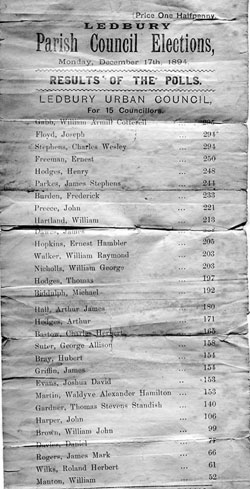 Price One Halfpenny.
LEDBURY
Parish Council Elections,
Monday, December 17th, 1894.
RESULTS OF THE POLLS.
LEDBURY URBAN COUNCIL,
For 15 Councillors.
Gabb, William Armill Cotterell ...
Floyd, Joseph ... 294
Stephens, Charles Wesley ... 294
Freeman, Ernest ... 250
Hodges, Henry ... 248
Parkes, James Stephens ... 244
Burden, Frederick ... 233
Preece, John ... 221
Hartland, William ... 213
Dawes, James
Hopkins, Ernest Hambler ... 205
Walker, William Raymond ... 203
Nicholls, William George ... 203
Hodges, Thomas ... 197
Biddulph, Michael ... 192
Hall, Arthur James ... 180
Hodges, Arthur ... 171
Bastow, Charles Herbert ... 165
Suter, George Allison ... 158
Bray, Hubert ... 154
Griffin, James ... 154
Evans, Joshua David ... 153
Martin, Waldyve Alexander Hamilton ... 153
Gardner, Thomas Stevens Standish ... 140
Harper, John ... 106
Brown, William John ... 99
Davies, Daniel ... 77
Rogers, James Mark ... 66
Wilks, Roland Herbert ... 61
Manton, William ... 52